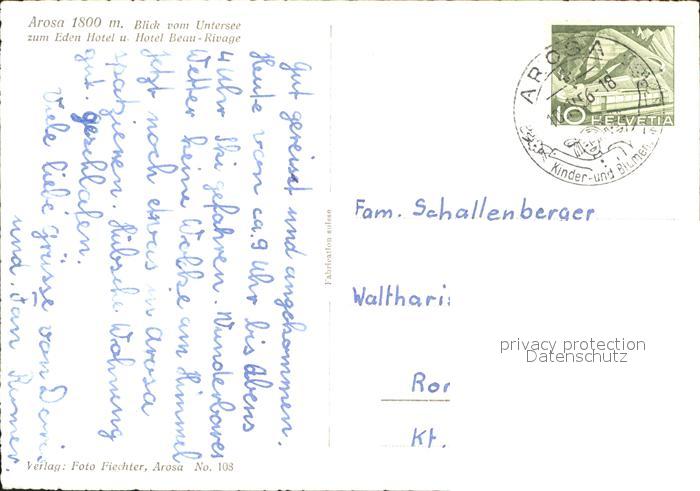 Arosa 1800 m. Blick vom Untersee
zum Eden Hotel u. Hotel Beau-Rivage
Gut gereist und angekommen.
Heute von ca. 9 Uhr bis Abens
4 Uhr Ski gefahren. Wunderbares
Wetter keine Wolke am Himmel
jetzt noch etwas in Arosa
spatzieren. Hübsche Wohnung
gut geschlafen.
Viele liebe Grüsse von
und
Verlag: Foto Fiechter, Arosa No. 103
Fabrication suisse
AROSA
10
HELVETIA
Kinder- und Blumen
Fam. Schallenberger
Walthari
privacy protection
Datenschutz
Ror
Kt.